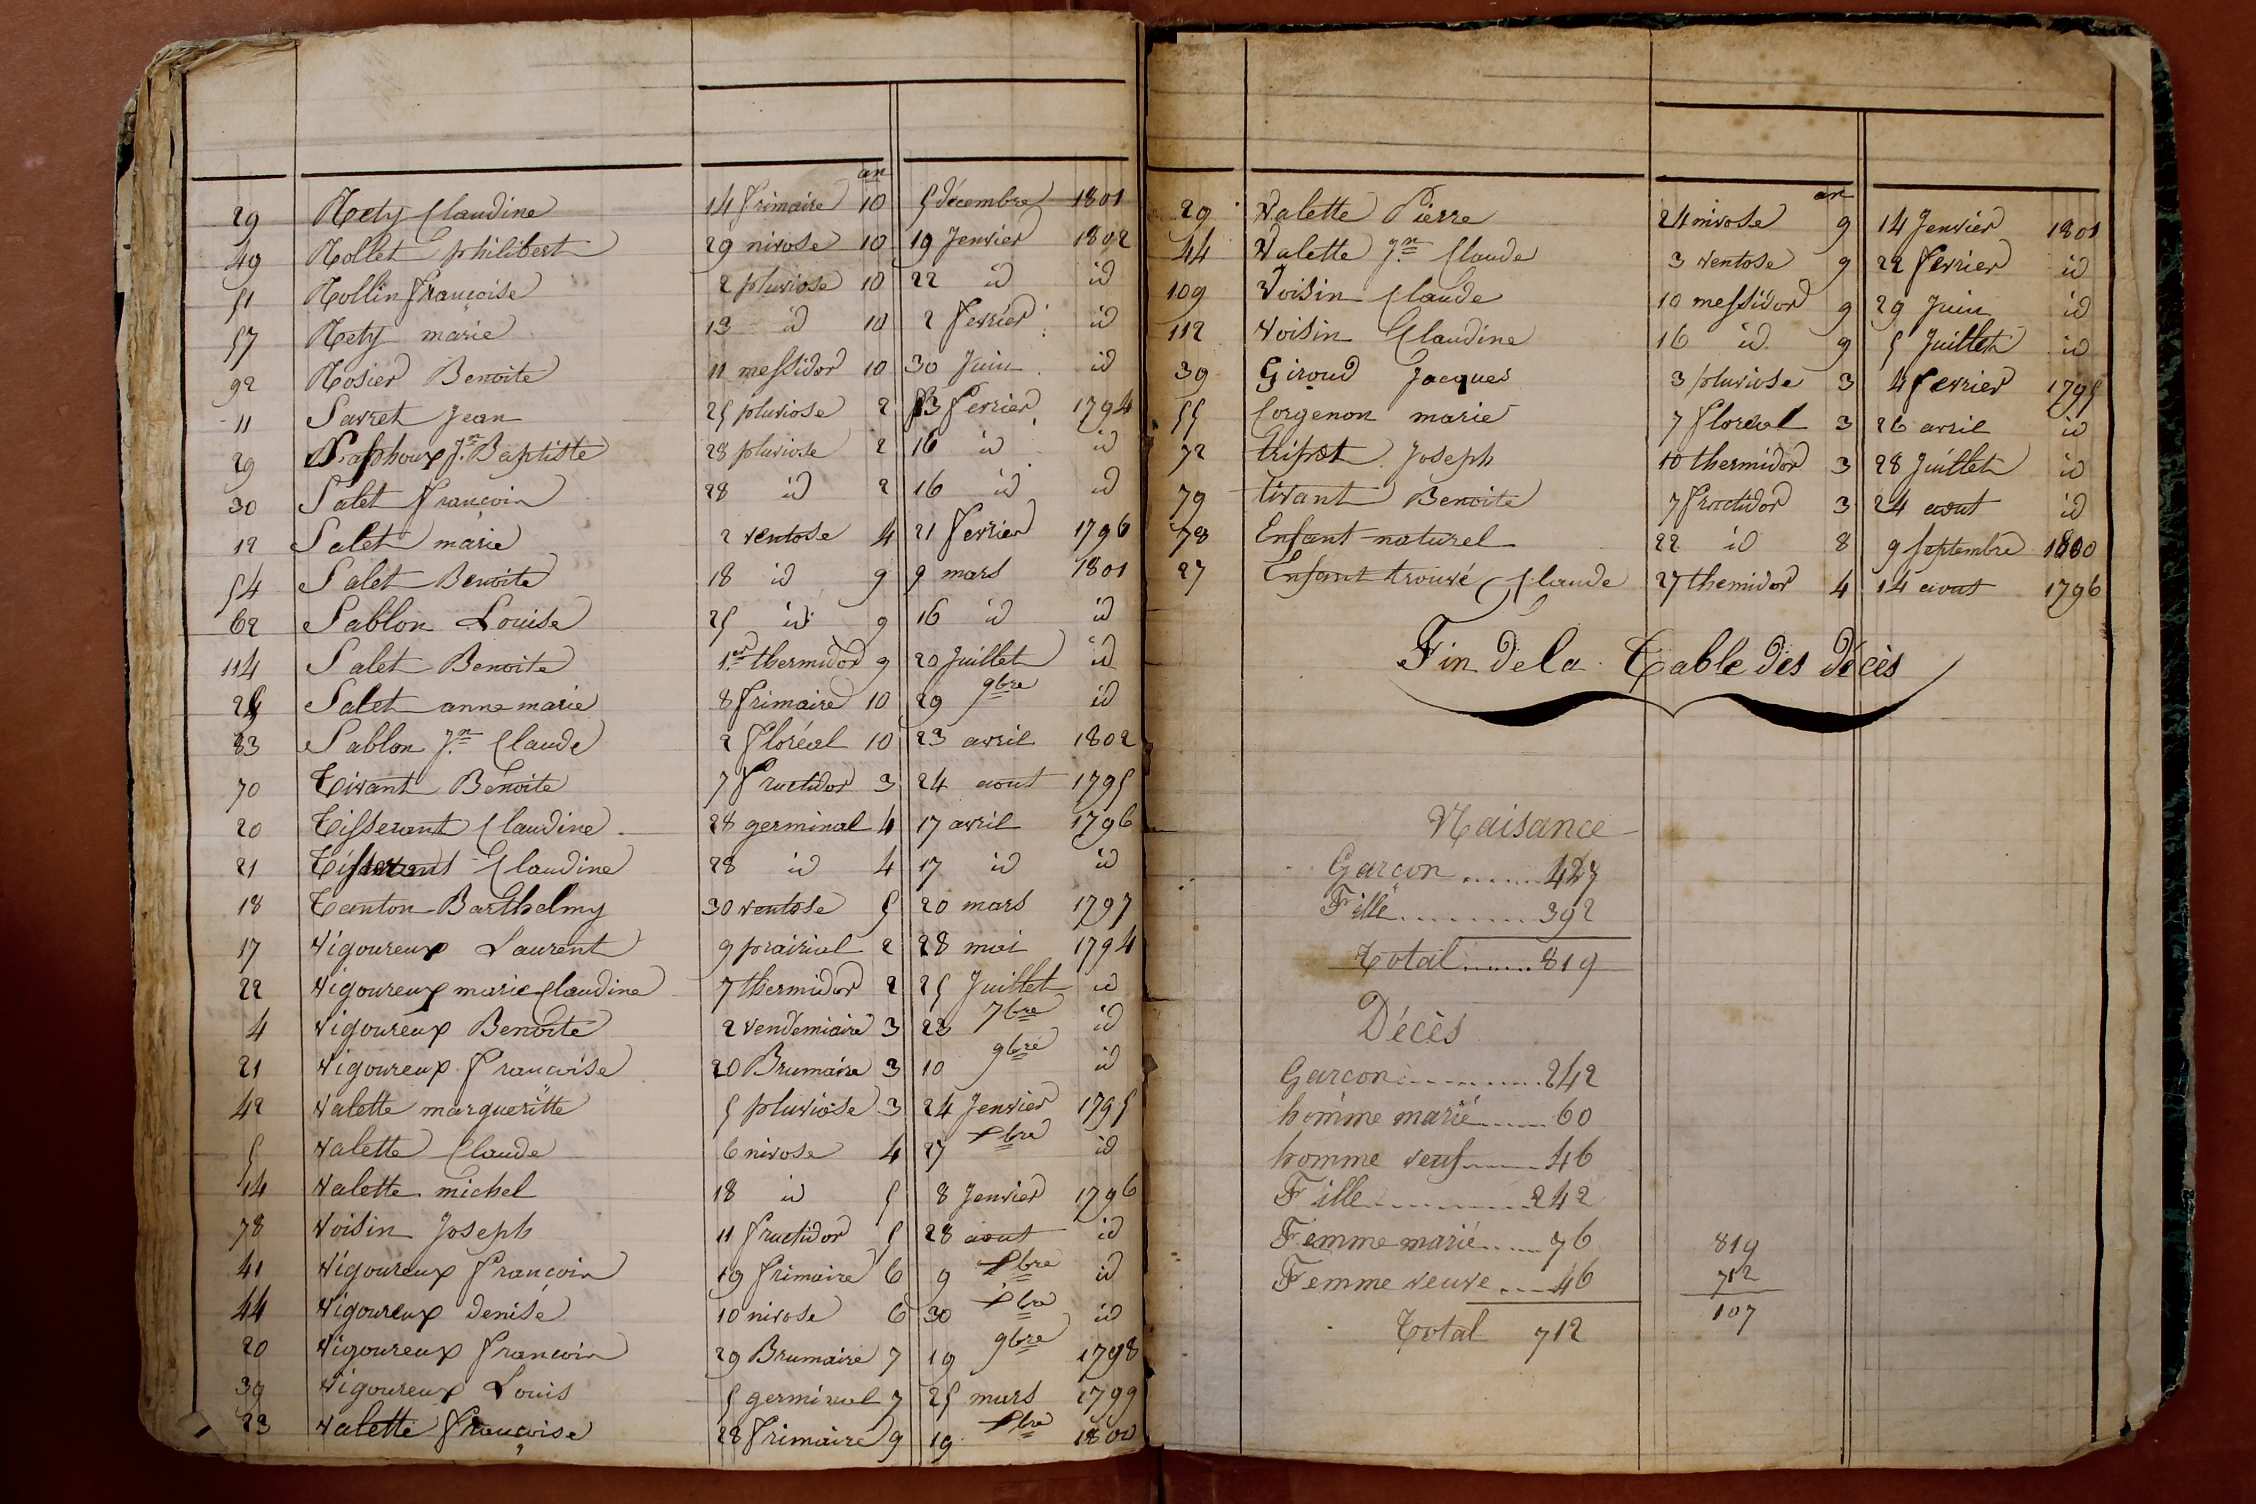 an
29 Rety Claudine 14 frimaire 10 5 décembre 1801
49 Rollet philibert 29 nivose 10 19 Jenvier 1802
51 Rollin françoise 2 pluviose 10 22 id id
57 Rety marie 13 id 10 2 fevrier id
92 Rosier Benoite 11 messidor 10 30 Juin id
11 Savret Jean 25 pluviose 2 13 fevrier 1794
29 J.n Baptiste 28 pluviose 2 16 id id
30 Salet françois 28 id 2 16 id id
12 Salet marie 2 ventose 4 21 fevrier 1796
54 Salet Benoite 18 id 9 9 mars 1801
62 Sablon Louise 25 id 9 16 id id
114 Salet Benoite 1.er thermidor 9 20 Juillet id
24 Salet anne marie 8 frimaire 10 29 9bre id
83 Sablon J.n Claude 2 floréal 10 23 avril 1802
70 Tivant Benoite 7 fructidor 3 24 aout 1795
20 Tisserant Claudine 28 germinal 4 17 avril 1796
21 Tisserant Claudine 28 id 4 17 id id
18 Tanton Barthelmy 30 ventose 5 20 mars 1797
17 Vigoureux Laurent 9 prairial 2 28 mai 1794
22 Vigoureux marie Claudine 7 thermidor 2 25 Juillet id
4 Vigoureux Benoite 2 vendemiaire 3 23 7bre id
21 Vigoureux françoise 20 Brumaire 3 10 9bre id
42 Valette margueritte 5 pluviose 3 24 Jenvier 1795
5 Valette Claude 6 nivose 4 27 Xbre id
14 Valette michel 18 id 5 8 Jenvier 1796
78 Voisin Joseph 11 fructidor 5 28 aout id
41 Vigoureux françois 19 frimaire 6 9 Xbre id
44 Vigoureux denise 10 nivose 6 30 Xbre id
20 Vigoureux francois 29 Brumaire 7 19 9bre 1798
39 Vigoureux Louis 5 germinal 7 25 mars 1799
23 Valette françoise 28 frimaire 9 19 Xbre 1800
an
29 Valette Pierre 24 nivose 9 14 Jenvier 1801
44 Valette J.n Claude 3 ventose 9 22 fevrier id
109 Voisin Claude 10 messidor 9 29 Juin id
112 Voisin Claudine 16 id 9 5 Juillet id
39 Giroud Jacques 3 pluviose 3 4 fevrier 1795
55 Corgenon marie 7 floreal 3 26 avril id
72 tripot Joseph 10 thermidor 3 28 Juillet id
79 tivant Benoite 7 fructidor 3 24 aout id
78 Enfant naturel 22 id 8 9 septembre 1800
27 Enfant trouvé Claude 27 themidor 4 14 aout 1796
Fin de la Table des décès
Naisance
Garçon ...... 427
Fille ......... 392
Total ...... 819
Décès
Garcon ......... 242
homme marié ..... 60
homme veuf ..... 46
Fille ......... 242
Femme marié ..... 76
Femme veuve .... 46
Total 712
819
712
107